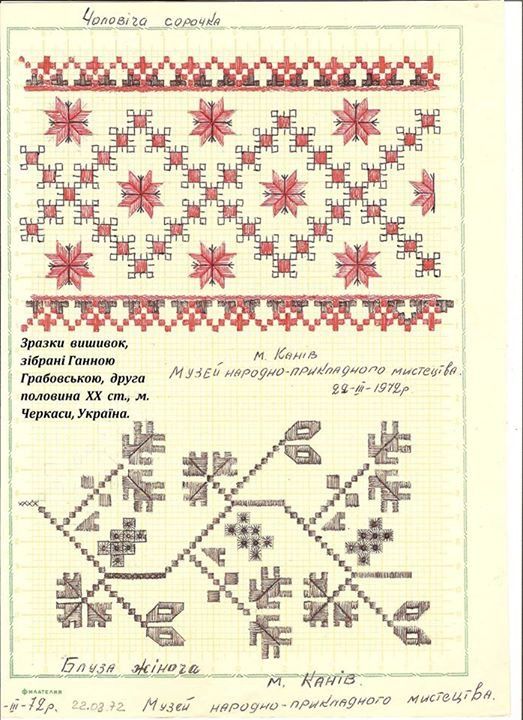 Чоловіча сорочка
Зразки вишивок,
зібрані Ганною
Грабовською, друга
половина ХХ ст., м.
Черкаси, Україна.
м. Канів
Музей народно-прикладного мистецтва.
22-III-1972р.
Блуза жіноча
м. Канів.
ФИЛАТЕЛИЯ
-III-72р. 22.03.72 Музей народно-прикладного мистецтва.